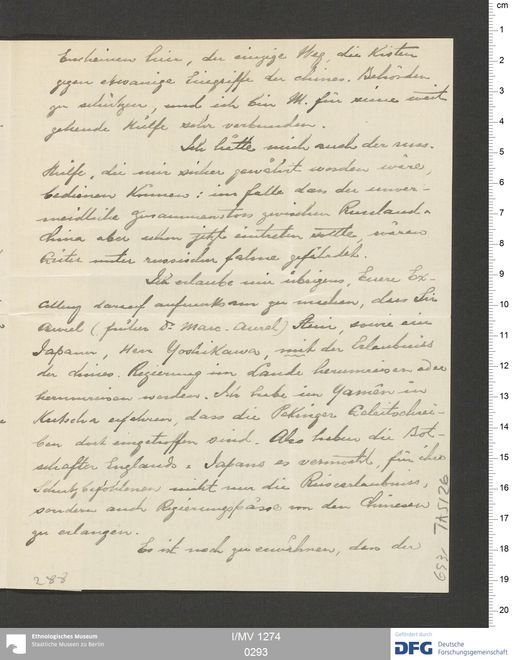 Erscheinen hier, der einzige Weg die Kisten
gegen etwanige Eingriffe der chines. Behörden
zu schützen, und ich bin M. für seine weit
gehende Hülfe sehr verbunden.
Ich hätte mich auch der russ.
Hülfe, die mir sicher gewährt worden wäre,
bedienen können; im falle dass der unver-
meidliche Zusammenstoss zwischen Russland u
China aber schon jetzt eintreten sollte, wären
Güter unter russischer fahne gefährdet.
Ich erlaube mir übrigens, Euere Ex-
cellenz darauf aufmerksam zu machen, dass Sir
Aurel (früher Dr. Marc-Aurel) Stein, sowie ein
Japaner, Herr Yoshikawa, mit der Erlaubniss
der chines. Regierung im Lande herumreisen oder
herumreisen werden. Ich habe im Yamên in
Kutscha erfahren, dass die Pekinger Geleitschrei-
ben dort eingetroffen sind. Also haben die Bot-
schafter Englands u Japans es vermocht, für ihre
Schutzbefohlenen nicht nur die Reiseerlaubniss,
sondern auch Regierungspässe von den Chinesen
zu erlangen.
Es ist noch zu erwähnen, dass der
288
653/ TA5126
cm
1
2
3
4
5
6
7
8
9
10
11
12
13
14
15
16
17
18
19
20
Ethnologisches Museum
Staatliche Museen zu Berlin
I/MV 1274
0293
Gefördert durch
DFG Deutsche
Forschungsgemeinschaft